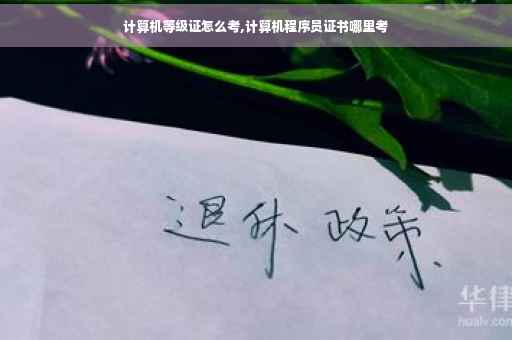 计算机等级证怎么考,计算机程序员证书哪里考
退休 政策
华律
hualv.com